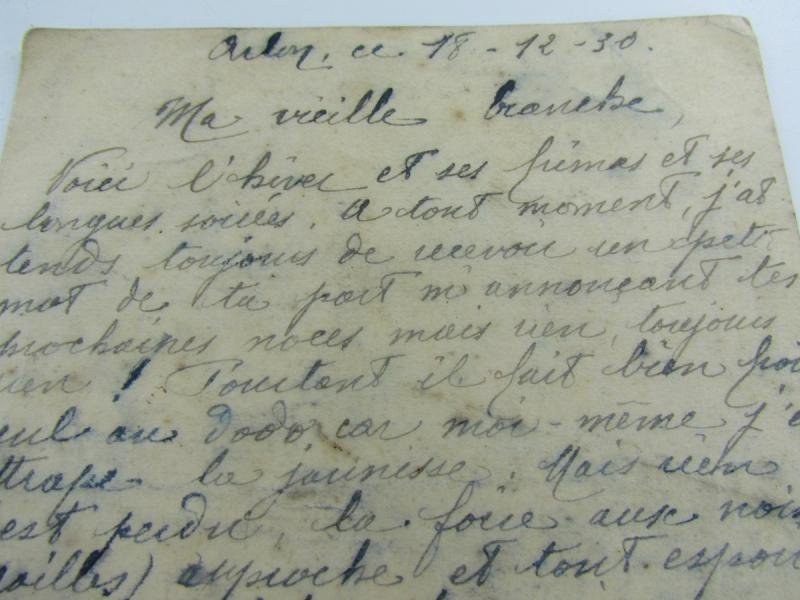 Arlon, ce 18-12-30.
Ma vieille branche,
Voici l'hiver et ses frimas et ses
longues soirées. A tout moment, j'at-
tends toujours de recevoir un petit
mot de ta part m'annonçant tes
prochaines noces mais rien, toujours
rien ! Pourtant il fait bien froi
eul au dodo car moi-même j'a
ttrape la jaunisse. Mais rien
est perdu, la foire aux nois
(ailles) approche et tout espoi